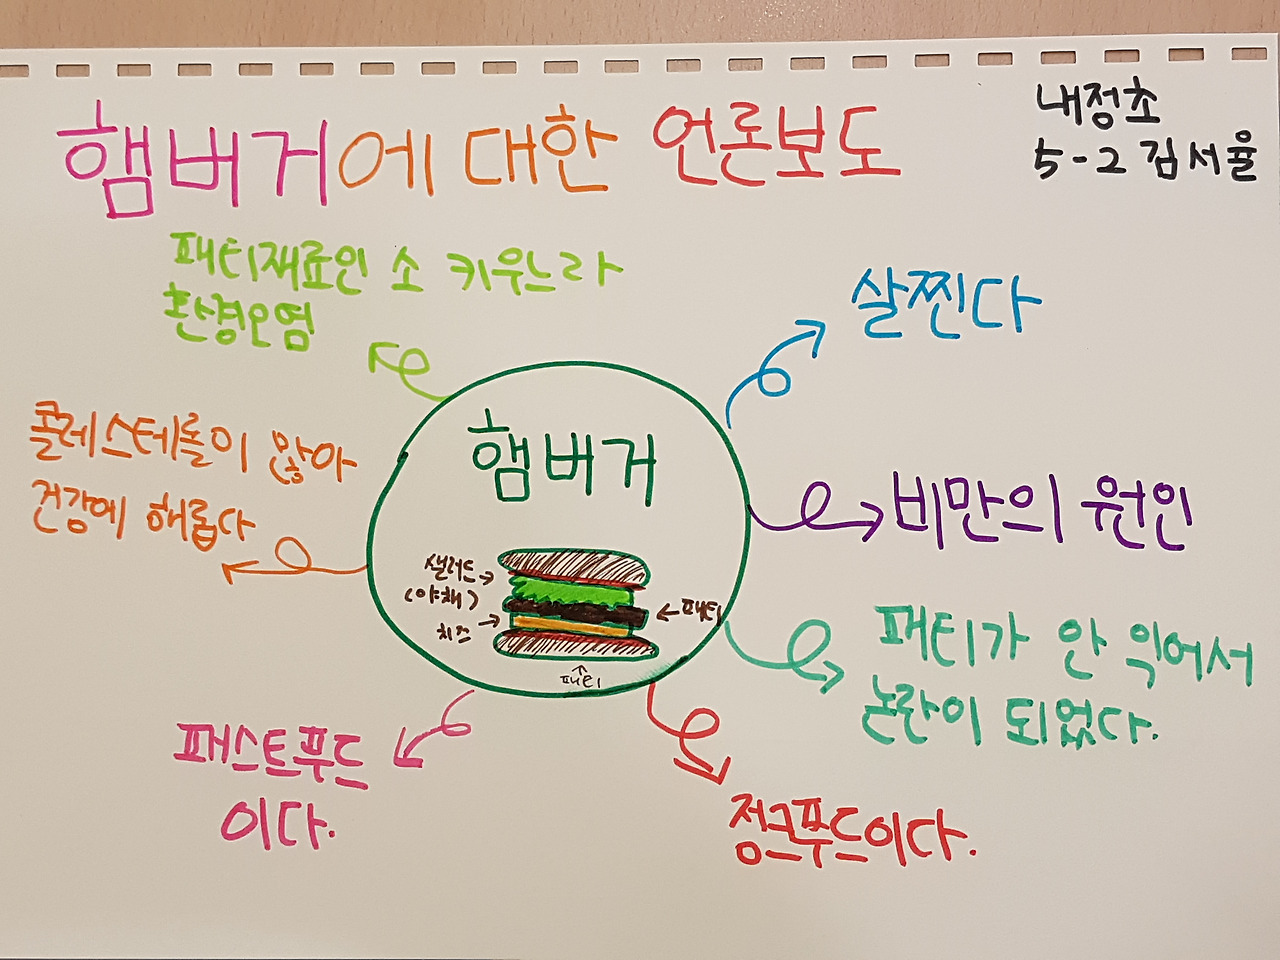 햄버거에 대한 언론보도
내정초
5-2 김서율
패티재료인 소 키우느라
환경오염
살찐다
콜레스테롤이 많아
건강에 해롭다
햄버거
비만의 원인
샐러드
(야채)
치즈
패티
패티
패티가 안 익어서
논란이 되었다.
패스트푸드
이다.
정크푸드이다.